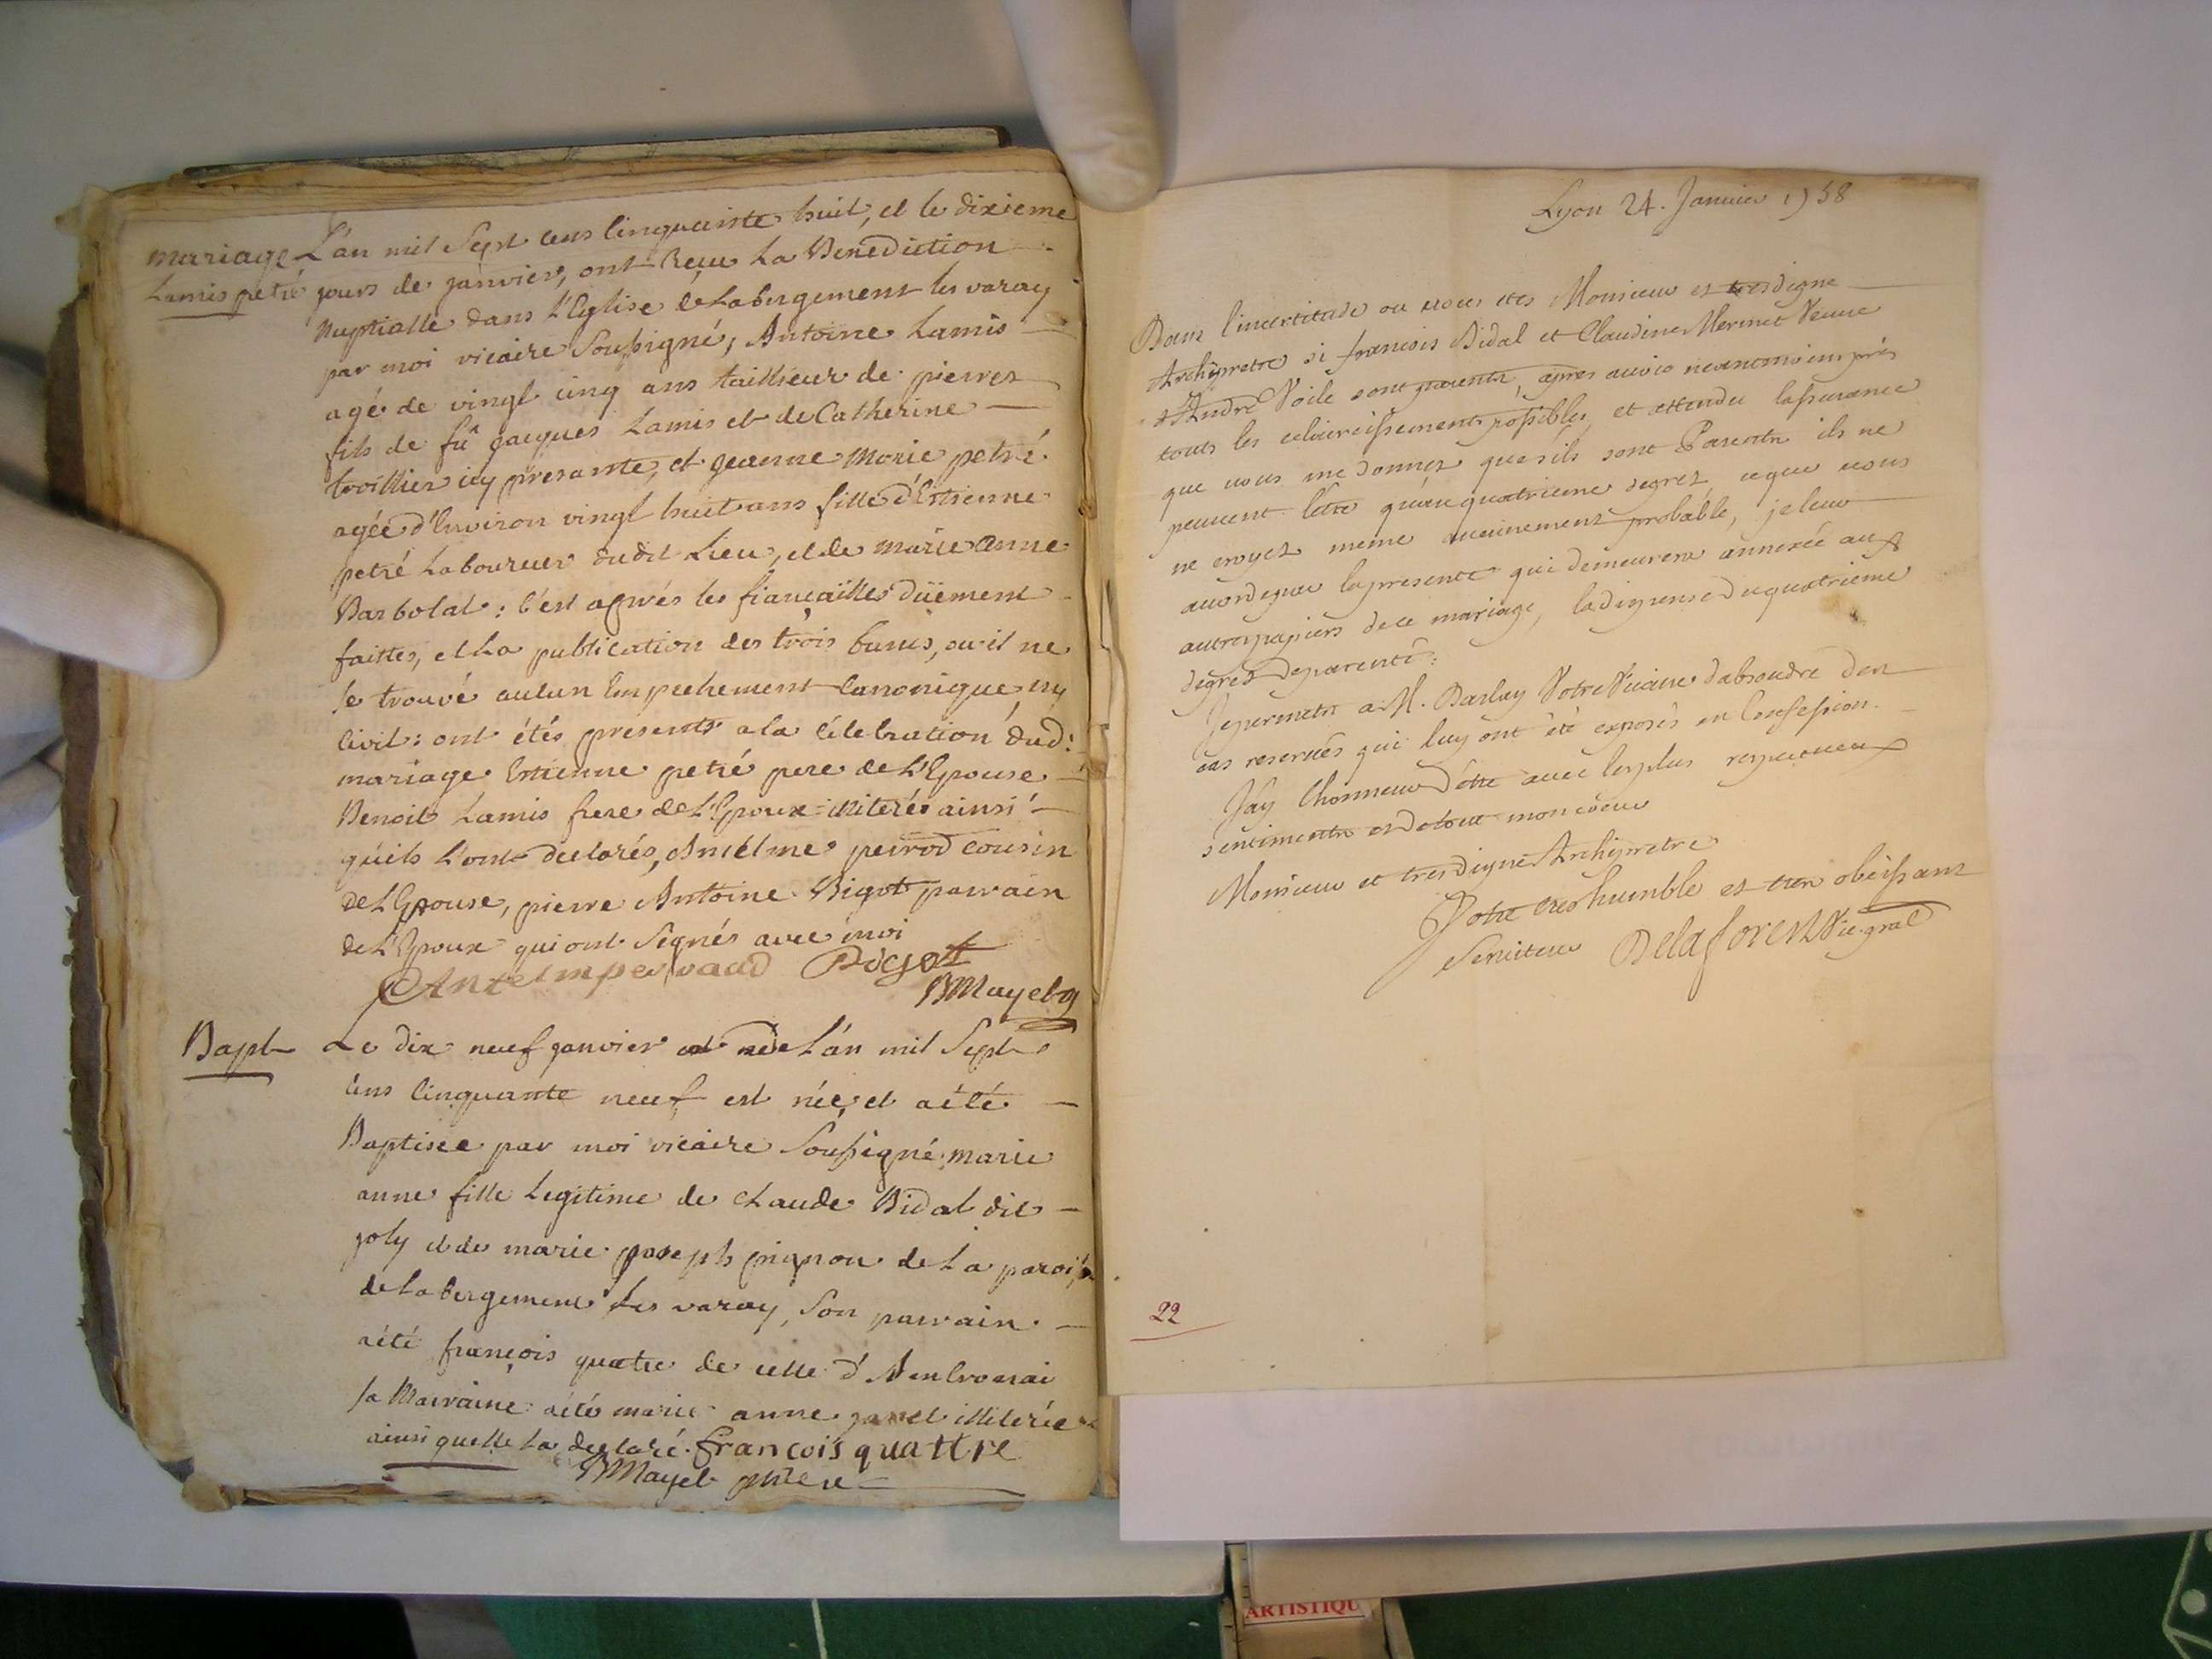 mariage L'an mil Sept cens cinquante huit, et le dixieme
Lamis petré jours de janvier, ont Reçu La Benediction
Nuptialle dans L'Eglise de Labergement les varay
par moi vicaire Soussigné, Antoine Lamis
agé de vingt cinq ans taillieur de pierres
fils de fû jacques Lamis et de Catherine
trollier icy presante, et jeanne Marie petré
agée d'Environ vingt huit ans fille d'Estienne
petré Laboureur dudit Lieu, et de marie anne
Barbolat : c'est aprés les fiançailles düement
faittes, et La publication des trois bans, ou il ne
se trouvé aucun Empechement Canonique, ny
Civil : ont étés presents a la célebration dud:
mariage Estienne petré pere de L'Epouse
Benoit Lamis frere de L'Epoux illiterés ainsi
qu'ils L'ont declarés, Anthelme peirod cousin
de L'Epouse, pierre Antoine Bigot parrain
de L'Epoux qui ont Segnés avec moi
Antelmpervaud Bigot
BMayet
Bapt Le dix neuf janvier de L'an mil Sept
cens Cinquante neuf est née, et a été
Baptisee par moi vicaire Soussigné marie
anne fille Legitime de Claude Bidal dit
joly et de marie joseph pignon de La paroisse
de Labergement Les varay, Son parrain
a été françois quatre de celle d'Ambronai
sa Marraine a été marie anne janet illiterée
ainsi quelle La declaré. françois quattre
BMayet ptre vic
Lyon 24. Janvier 1758
Dans l'incertitude ou vous etes Monsieur et tres digne
Archipretre si francois Bidal et Claudine Mermet Veuve
d'André Voile sont parents, apres avoir neanmoins pris
touts les eclaircissements possibles, et attendu l'assurance
que vous me donnez que s'ils sont Parents ils ne
peuvent l'etre qu'au quatrieme degrez, ce que vous
ne croyez meme aucunement probable, je leur
accorde par la presente qui demeurera annexée aux
autres papiers de ce mariage, la dispense du quatrieme
degrez de parenté.
Je permets a M. Barlay Votre Vicaire d'absoudre des
cas reservés qui luy ont été exposés en Confession.
J'ay l'honneur d'etre avec les plus respectueux
sentiments et de tout mon coeur
Monsieur et tres digne Archipretre
Votre tres humble et tres obeissant
Serviteur Delaforest Vic. gnal
22
ARTISTIQU